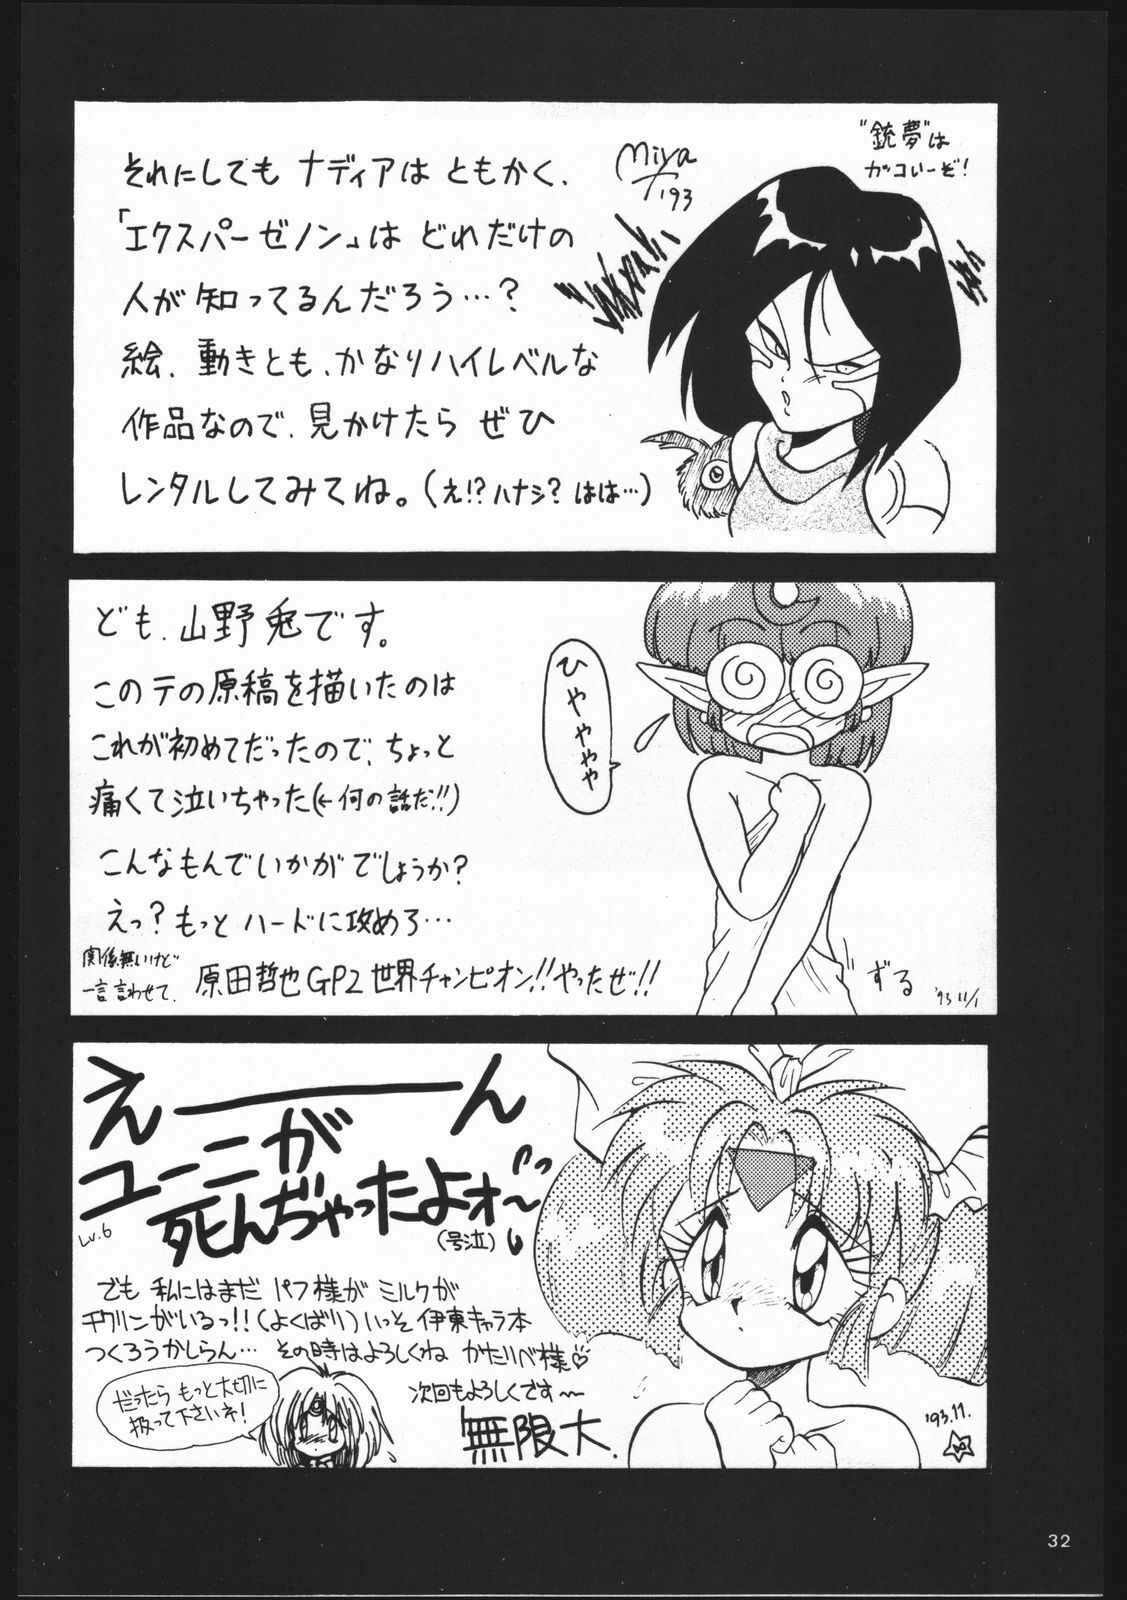 それにしても ナディアは ともかく、
「エクスパーゼノン」は どれだけの
人が 知ってるんだろう…？
絵、動きとも、かなりハイレベルな
作品なので、見かけたら ぜひ
レンタルしてみてね。(え!? ハナシ? はは…)
Miya
'93
"銃夢"は
ガッコいーぞ!
ども、山野兎です。
このテの原稿を描いたのは
これが初めてだったので、ちょっと
痛くて泣いちゃった(←何の話だ!!)
こんなもんでいかがでしょうか?
えっ? もっと ハードに攻めろ…
関係無いけど
一言 言わせて、
原田哲也GP2世界チャンピオン!! やったぜ!!
ひゃゃゃゃ
ずる
'93 11/1
えーーん
ユーニが
Lv.6
死んぢゃったよォ〜
(号泣)
でも 私にはまだ パフ様が ミルクが
チクリンがいるっ!! (よくばり) いっそ 伊東キャラ本
つくろうかしらん… その時はよろしくね かたりべ様♡
だったら もっと大切に
扱って下さいネ!
次回もよろしくです〜
無限大.
'93.11.
32